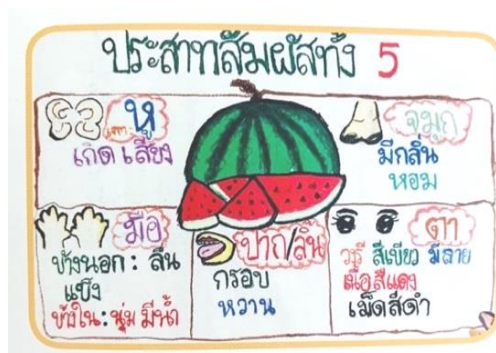 ประสาทสัมผัสทั้ง 5
หู
เกิด เสียง
จมูก
มีกลิ่น
หอม
มือ
ข้างนอก : ลื่น
แข็ง
ข้างใน : ชุ่ม มีน้ำ
ปาก/ลิ้น
กรอบ
หวาน
ตา
สีเขียว มีลาย
เนื้อสีแดง
เม็ดสีดำ